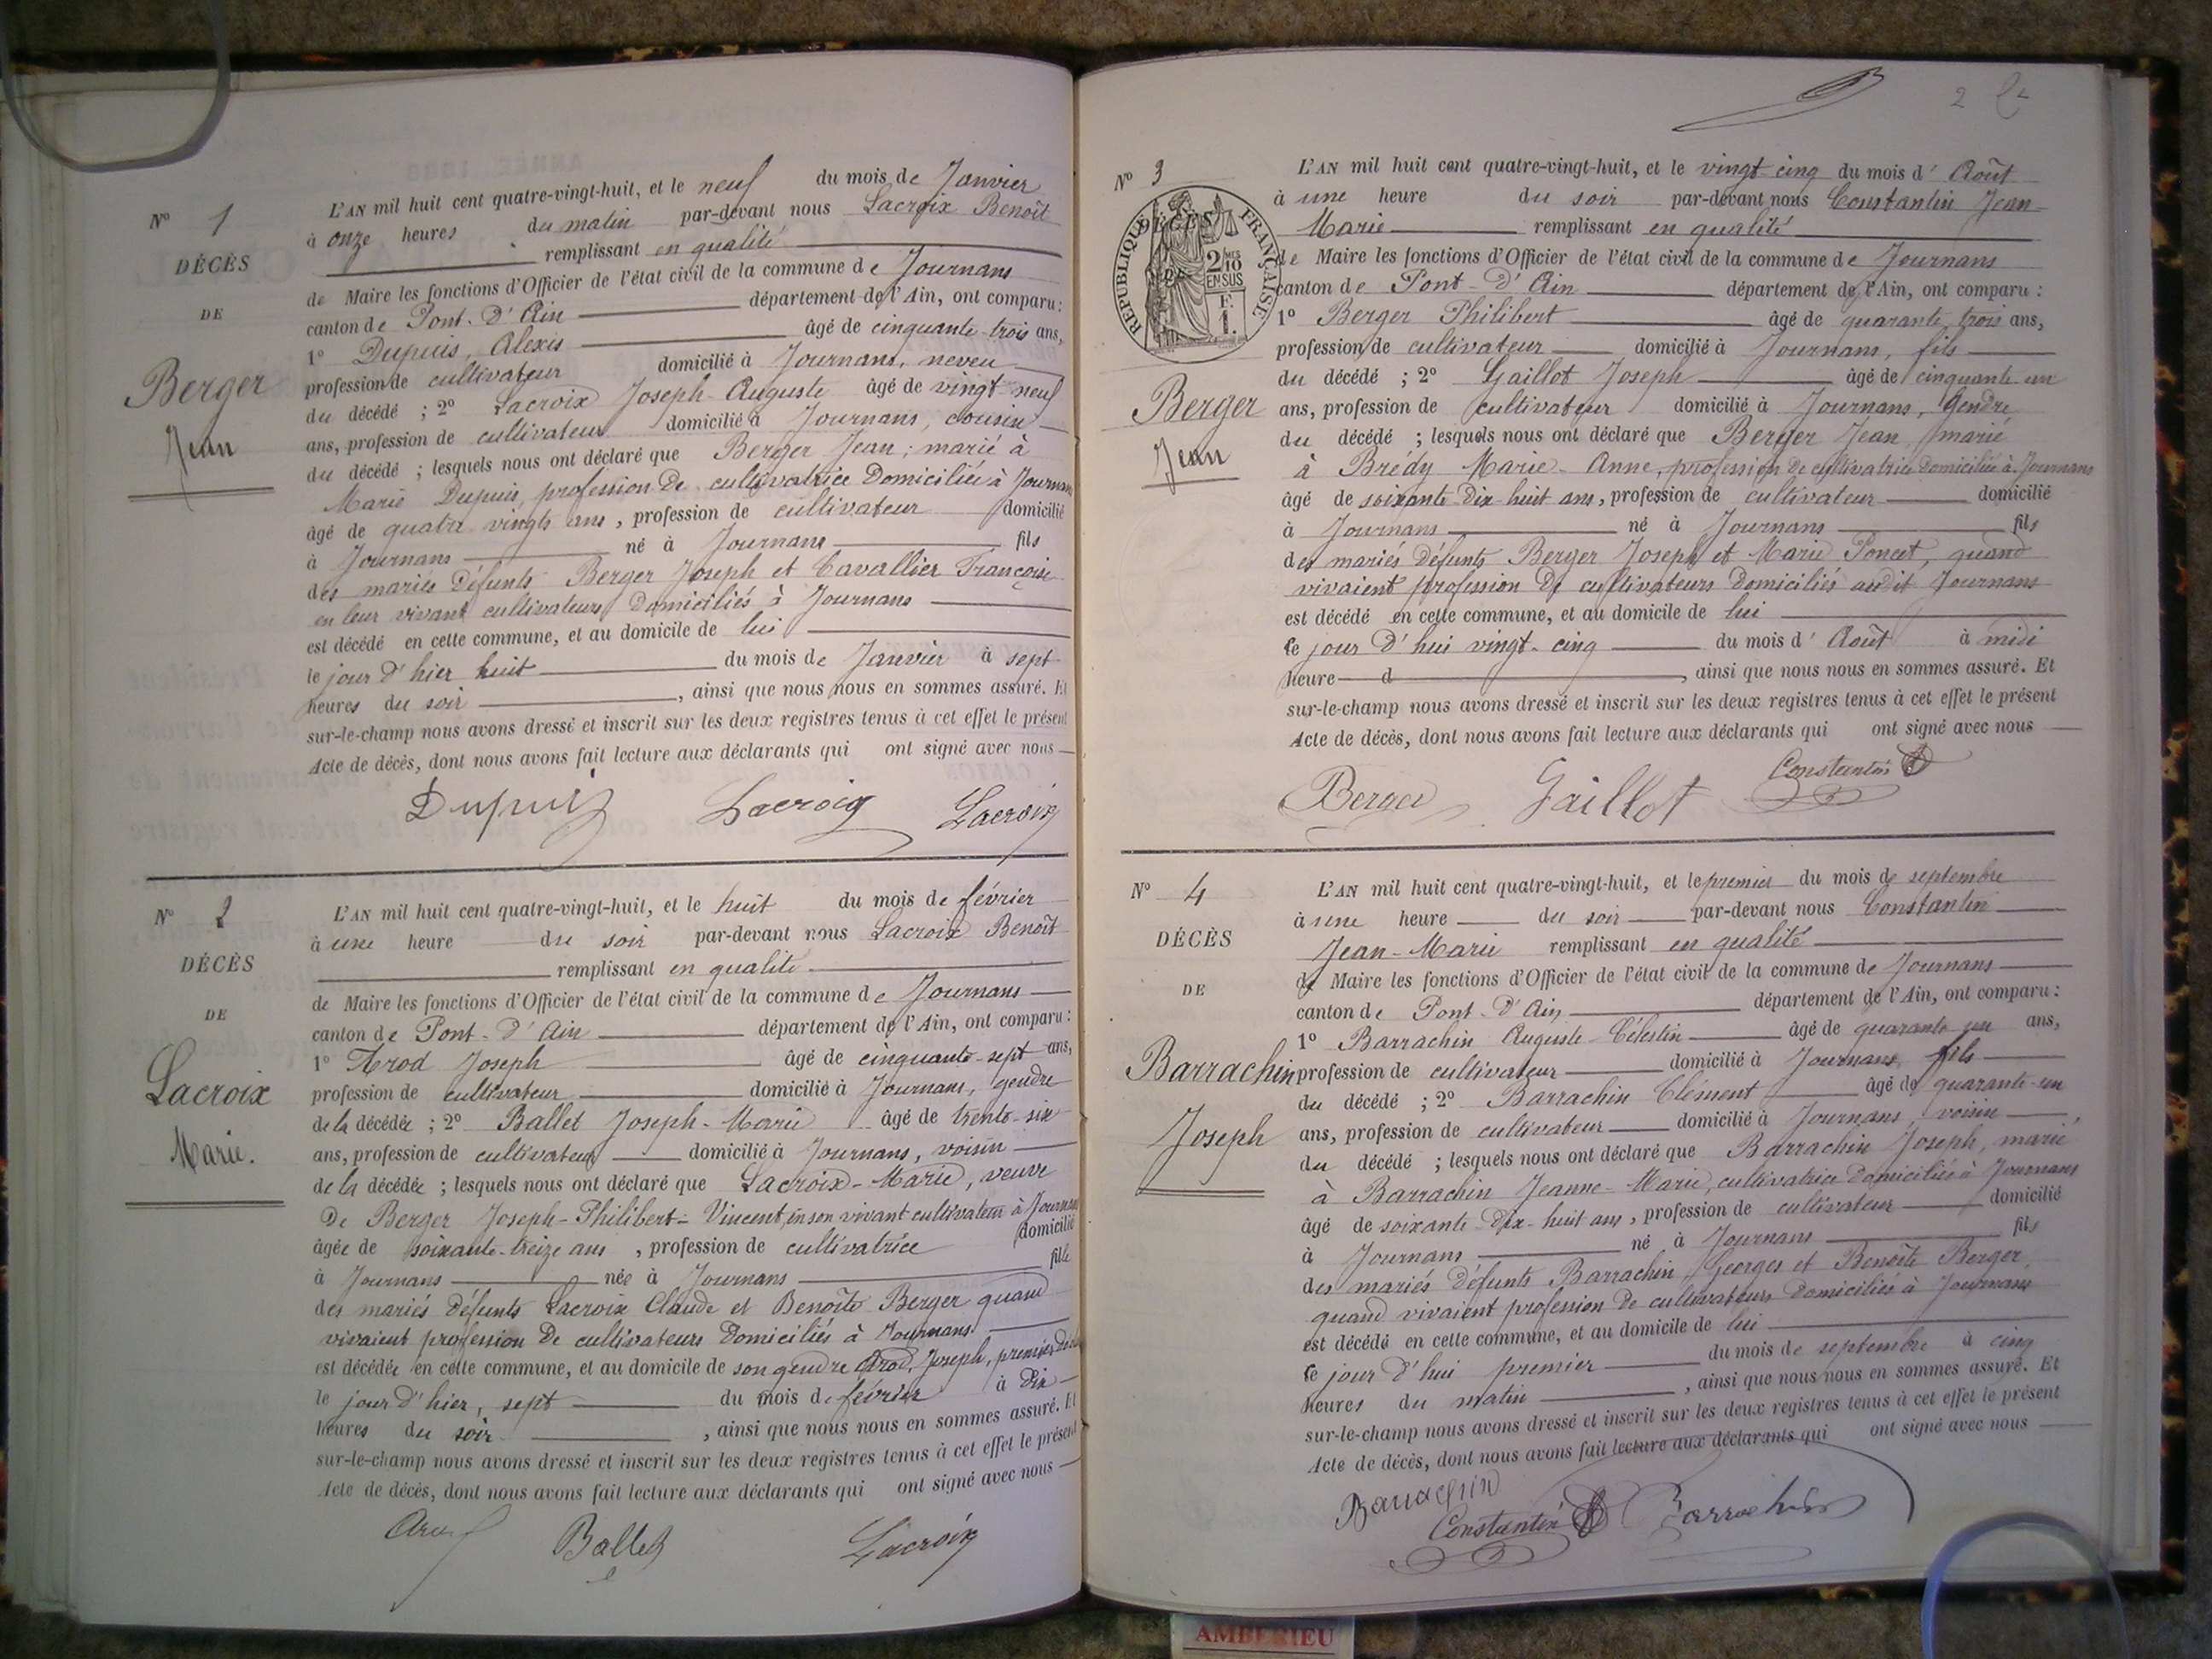 Nº 1
DÉCÈS
DE
Berger
Jean
L'AN mil huit cent quatre-vingt-huit, et le neuf du mois de Janvier
à onze heures du matin par-devant nous Lacroix Benoît
remplissant en qualité
de Maire les fonctions d'Officier de l'état civil de la commune de Journans
canton de Pont-d'Ain département de l'Ain, ont comparu :
1º Dupuis, Alexis âgé de cinquante-trois ans,
profession de cultivateur domicilié à Journans, neveu
du décédé ; 2º Lacroix Joseph-Auguste âgé de vingt-neuf
ans, profession de cultivateur domicilié à Journans, cousin
du décédé ; lesquels nous ont déclaré que Berger Jean ; marié à
Marie Dupuis, profession de cultivatrice domiciliée à Journans
âgé de quatre vingts ans, profession de cultivateur domicilié
à Journans né à Journans fils
des mariés défunts Berger Joseph et Cavallier Françoise
en leur vivant cultivateurs domiciliés à Journans
est décédé en cette commune, et au domicile de lui
le jour d'hier huit du mois de Janvier à sept
heures du soir, ainsi que nous nous en sommes assuré. Et
sur-le-champ nous avons dressé et inscrit sur les deux registres tenus à cet effet le présent
Acte de décès, dont nous avons fait lecture aux déclarants qui ont signé avec nous
Dupuis Lacroix Lacroix
Nº 2
DÉCÈS
DE
Lacroix
Marie.
L'AN mil huit cent quatre-vingt-huit, et le huit du mois de février
à une heure du soir par-devant nous Lacroix Benoît
remplissant en qualité
de Maire les fonctions d'Officier de l'état civil de la commune de Journans
canton de Pont-d'Ain département de l'Ain, ont comparu :
1º Arod Joseph âgé de cinquante-sept ans,
profession de cultivateur domicilié à Journans, gendre
de la décédée ; 2º Ballet Joseph-Marie âgé de trente-six
ans, profession de cultivateur domicilié à Journans, voisin
de la décédée ; lesquels nous ont déclaré que Lacroix-Marie, veuve
De Berger Joseph-Philibert-Vincent, en son vivant cultivateur à Journans
âgée de soixante-treize ans, profession de cultivatrice domicilié
à Journans née à Journans fille
des mariés défunts Lacroix Claude et Benoîte Berger quand
vivaient profession de cultivateurs domiciliés à Journans
est décédée en cette commune, et au domicile de son gendre Arod, Joseph, premier
le jour d'hier, sept du mois de février à dix
heures du soir, ainsi que nous nous en sommes assuré. Et
sur-le-champ nous avons dressé et inscrit sur les deux registres tenus à cet effet le présent
Acte de décès, dont nous avons fait lecture aux déclarants qui ont signé avec nous
Arod Ballet Lacroix
2
Nº 3
DÉCÈS
DE
RÉPUBLIQUE FRANÇAISE
2/10 EN SUS
F. 1.
Berger
Jean
L'AN mil huit cent quatre-vingt-huit, et le vingt cinq du mois d'Août
à une heure du soir par-devant nous Constantin Jean-
Marie remplissant en qualité
de Maire les fonctions d'Officier de l'état civil de la commune de Journans
canton de Pont-d'Ain département de l'Ain, ont comparu :
1º Berger Philibert âgé de quarante trois ans,
profession de cultivateur domicilié à Journans, fils
du décédé ; 2º Gaillot Joseph âgé de cinquante-un
ans, profession de cultivateur domicilié à Journans, gendre
du décédé ; lesquels nous ont déclaré que Berger Jean marié
à Brédy Marie-Anne, profession de cultivatrice domiciliée à Journans
âgé de soixante dix huit ans, profession de cultivateur domicilié
à Journans né à Journans fils
des mariés défunts Berger Joseph et Marie Poncet, quand
vivaient profession de cultivateurs domiciliés audit Journans
est décédé en cette commune, et au domicile de lui
le jour d'hui vingt-cinq du mois d'Août à midi
heure d, ainsi que nous nous en sommes assuré. Et
sur-le-champ nous avons dressé et inscrit sur les deux registres tenus à cet effet le présent
Acte de décès, dont nous avons fait lecture aux déclarants qui ont signé avec nous
Berger Gaillot Constantin
Nº 4
DÉCÈS
DE
Barrachin
Joseph
L'AN mil huit cent quatre-vingt-huit, et le premier du mois de septembre
à une heure du soir par-devant nous Constantin
Jean-Marie remplissant en qualité
de Maire les fonctions d'Officier de l'état civil de la commune de Journans
canton de Pont-d'Ain département de l'Ain, ont comparu :
1º Barrachin Auguste-Célestin âgé de quarante un ans,
profession de cultivateur domicilié à Journans, fils
du décédé ; 2º Barrachin Clément âgé de quarante-un
ans, profession de cultivateur domicilié à Journans, voisin
du décédé ; lesquels nous ont déclaré que Barrachin Joseph, marié
à Barrachin Jeanne-Marie, cultivatrice domiciliée à Journans
âgé de soixante-dix-huit ans, profession de cultivateur domicilié
à Journans né à Journans fils
des mariés défunts Barrachin Georges et Benoîte Berger,
quand vivaient profession de cultivateurs domiciliés à Journans
est décédé en cette commune, et au domicile de lui
le jour d'hui premier du mois de septembre à cinq
heures du matin, ainsi que nous nous en sommes assuré. Et
sur-le-champ nous avons dressé et inscrit sur les deux registres tenus à cet effet le présent
Acte de décès, dont nous avons fait lecture aux déclarants qui ont signé avec nous
Barrachin Constantin Barrachin
AMBERIEU